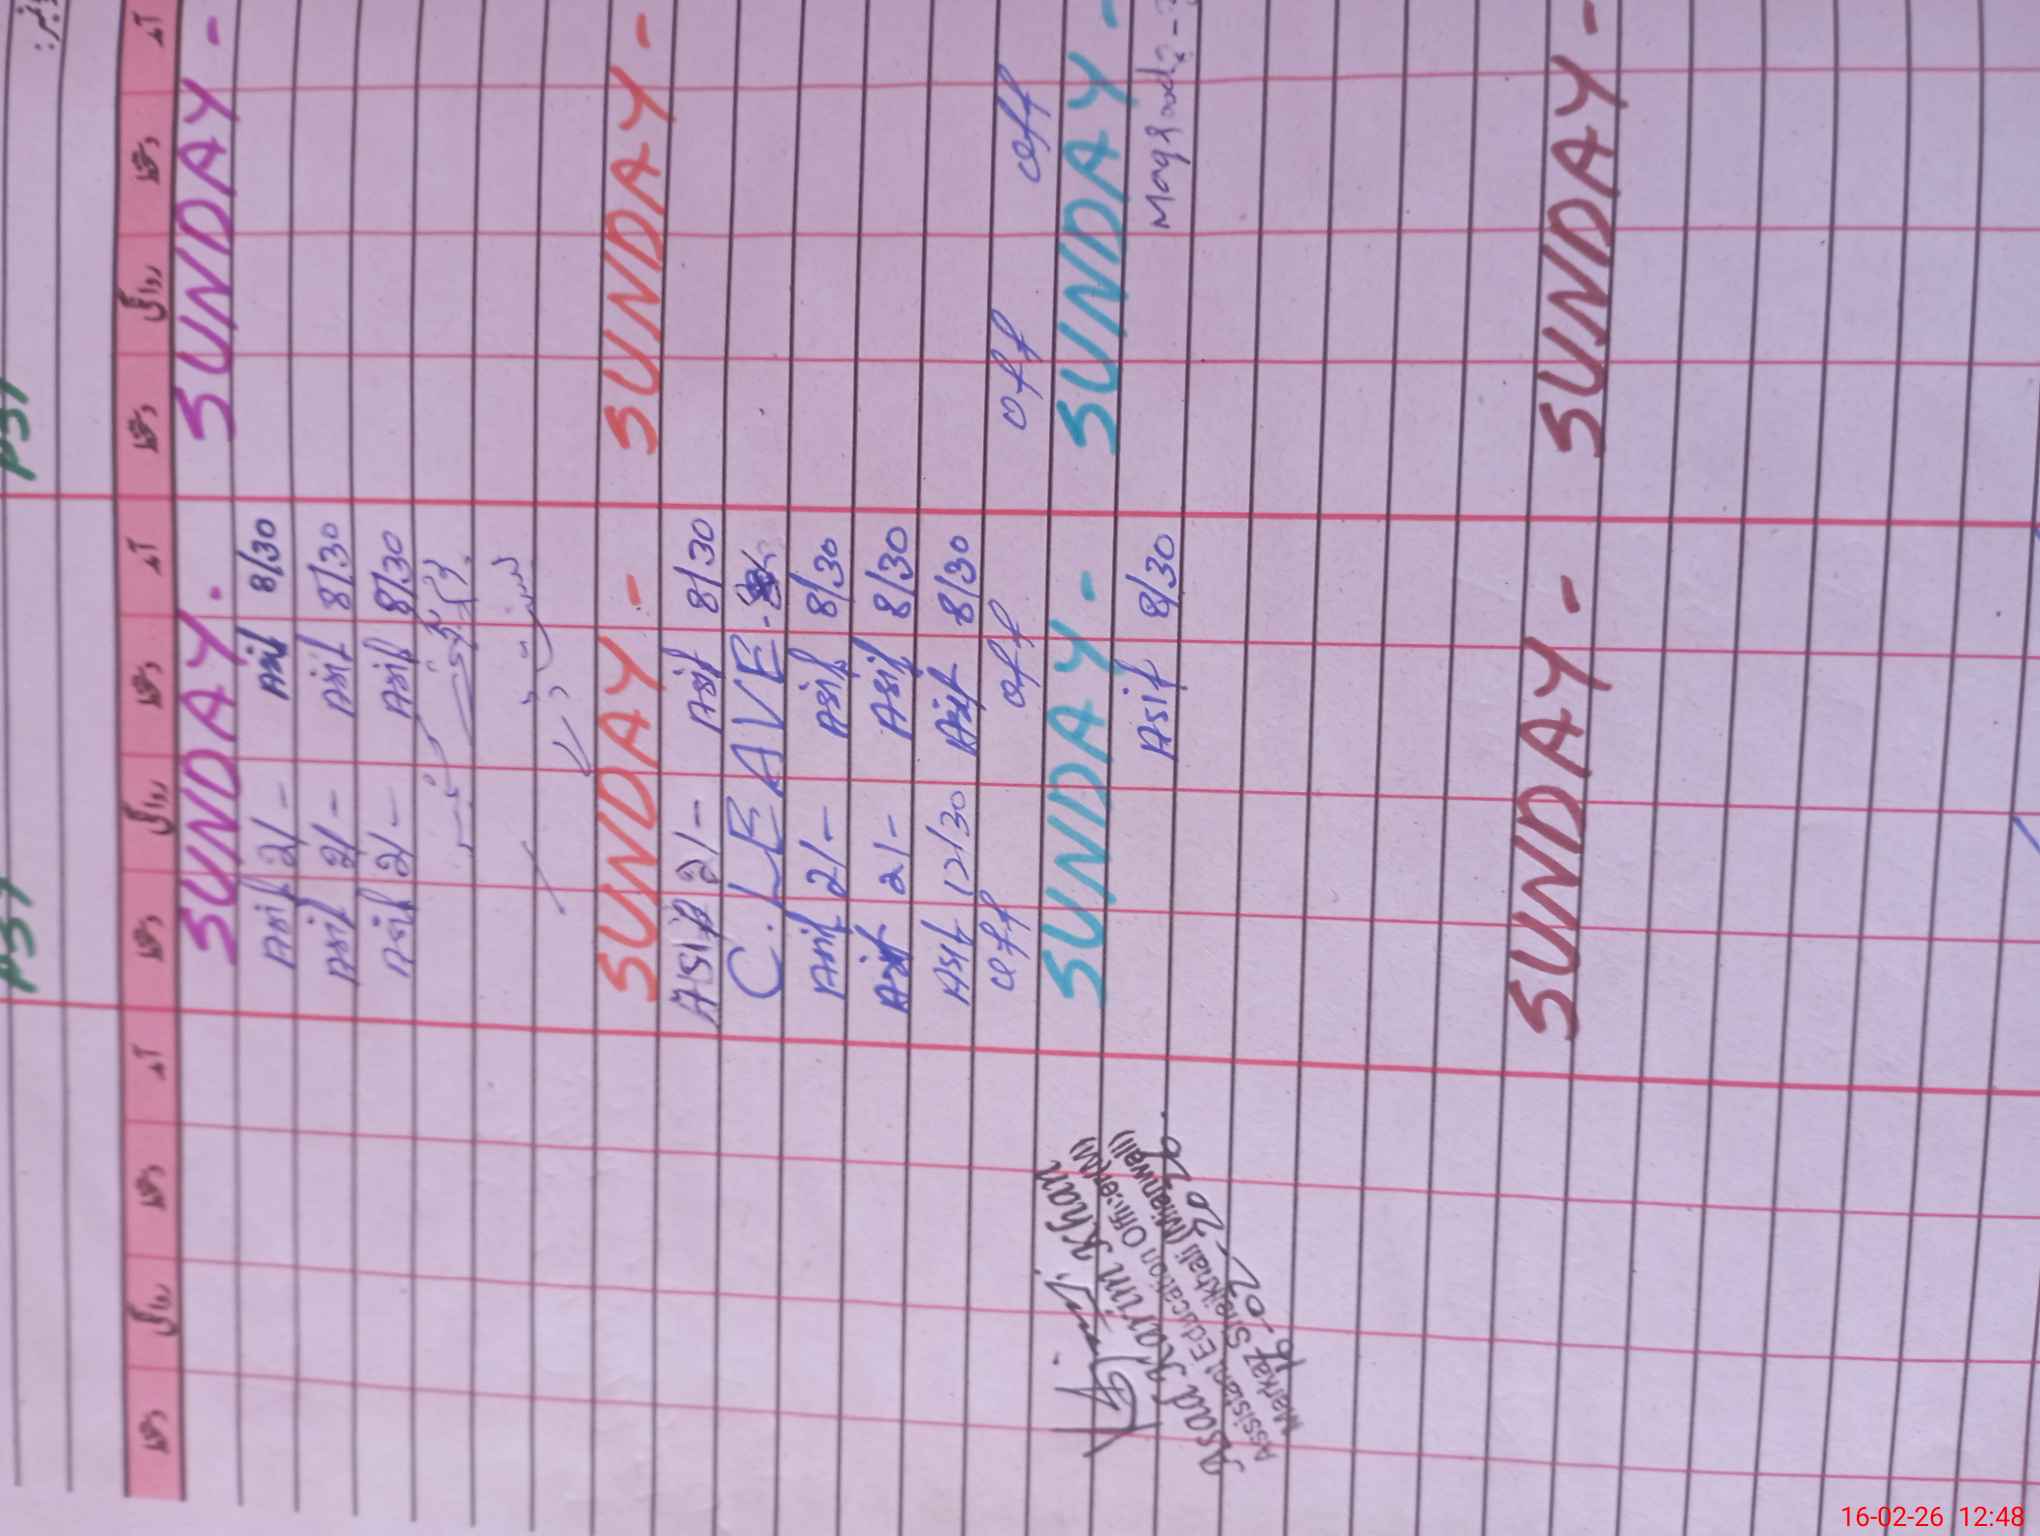 PST PST
آمد دستخط روانگی دستخط آمد دستخط روانگی دستخط آمد دستخط روانگی دستخط
SUNDAY. SUNDAY -
Asif 2/- Asif 8/30
Asif 2/- Asif 8/30
Asif 2/- Asif 8/30
SUNDAY - SUNDAY -
Asif 2/- Asif 8/30
C. LEAVE -
Asif 2/- Asif 8/30
Asif 2/- Asif 8/30
Asif 12/30 Asif 8/30
off off off off
SUNDAY - SUNDAY -
Asif 8/30
Asad Karim Khan
Assistant Education Officer (M)
Markaz Sheikhali (Mianwali)
16-02-2026
SUNDAY - SUNDAY -
16-02-26 12:48